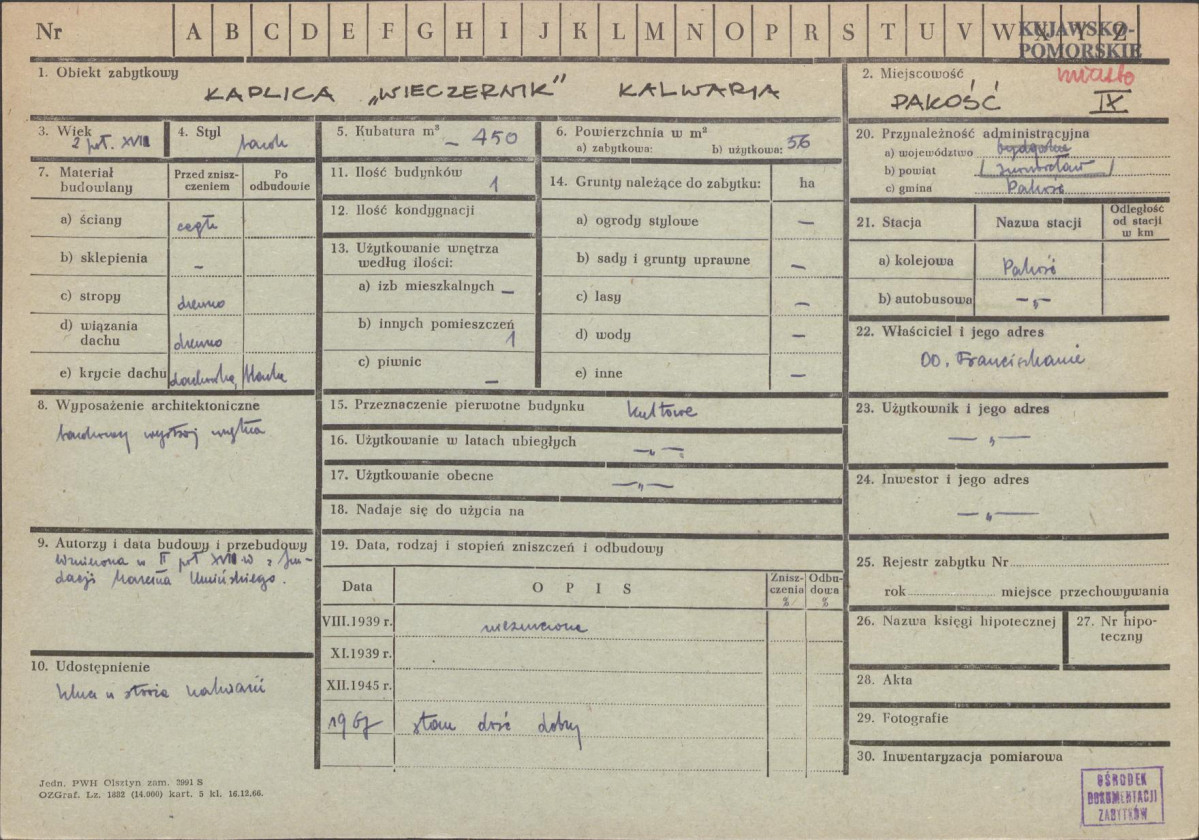 Nr A B C D E F G H I J K L M N O P R S T U V W X Y Z
KUJAWSKO-
POMORSKIE
1. Obiekt zabytkowy
KAPLICA „WIECZERNIK” KALWARJA
2. Miejscowość
miasto
PAKOŚĆ IX
3. Wiek
2 poł. XVIII
4. Styl
barok
5. Kubatura m³
~ 450
6. Powierzchnia w m²
a) zabytkowa: b) użytkowa: 56
7. Materiał
budowlany
Przed znisz-
czeniem
Po
odbudowie
a) ściany cegła
b) sklepienia –
c) stropy drewno
d) wiązania
dachu drewno
e) krycie dachu dachówka, blacha
8. Wyposażenie architektoniczne
barokowy wystrój wnętrza
9. Autorzy i data budowy i przebudowy
wzniesiona w II poł XVIII w z fun-
dacji Marcina Umińskiego.
10. Udostępnienie
11. Ilość budynków
1
12. Ilość kondygnacji
13. Użytkowanie wnętrza
według ilości:
a) izb mieszkalnych –
b) innych pomieszczeń
1
c) piwnic
–
14. Grunty należące do zabytku: ha
a) ogrody stylowe –
b) sady i grunty uprawne –
c) lasy –
d) wody –
e) inne –
15. Przeznaczenie pierwotne budynku kultowe
16. Użytkowanie w latach ubiegłych
–„–
17. Użytkowanie obecne
–„–
18. Nadaje się do użycia na
19. Data, rodzaj i stopień zniszczeń i odbudowy
Data OPIS
Znisz-
czenia
%
Odbu-
dowa
%
VIII.1939 r. niezniszczone
XI.1939 r.
XII.1945 r.
1967 stan dość dobry
20. Przynależność administracyjna
a) województwo bydgoskie
b) powiat Inowrocław
c) gmina Pakość
21. Stacja Nazwa stacji
Odległość
od stacji
w km
a) kolejowa Pakość
b) autobusowa –„–
22. Właściciel i jego adres
OO. Franciszkanie
23. Użytkownik i jego adres
–„–
24. Inwestor i jego adres
–„–
25. Rejestr zabytku Nr
rok miejsce przechowywania
26. Nazwa księgi hipotecznej
27. Nr hipo-
teczny
28. Akta
29. Fotografie
30. Inwentaryzacja pomiarowa
OŚRODEK
DOKUMENTACJI
ZABYTKÓW
Jedn. PWH Olsztyn zam. 3991 S
OZGraf. Lz. 1882 (14.000) kart. 5 kl. 16.12.66.